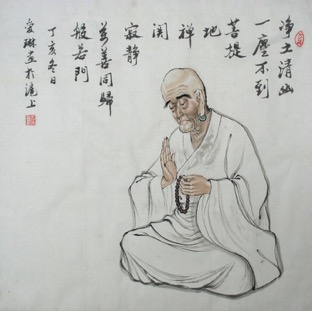 净土清幽
一塵不到
菩提
地
禅
関
寂静
萬善同歸
般若門
丁亥冬日
爱琳画於滬上